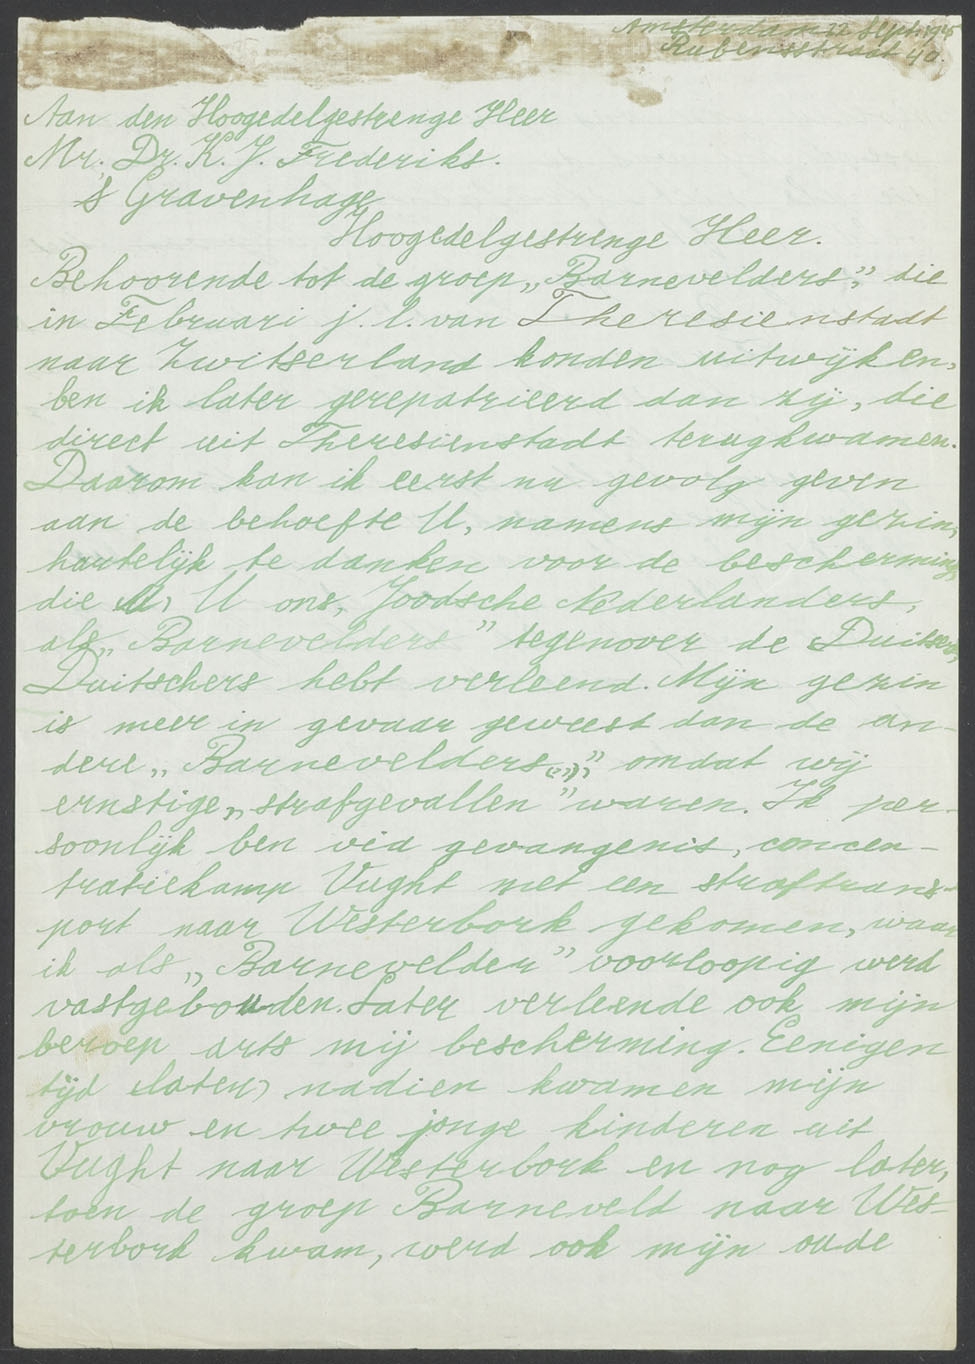 Amsterdam 22 Sept. 1945
Rubensstraat 4a.
Aan den Hoogedelgestrenge Heer
Mr. Dr. K. J. Frederiks.
's Gravenhage
Hoogedelgestrenge Heer.
Behoorende tot de groep „Barnevelders”, die
in Februari j.l. van Theresienstadt
naar Zwitserland konden uitwijken,
ben ik later gerepatrieerd dan zij, die
direct uit Theresienstadt terugkwamen.
Daarom kan ik eerst nu gevolg geven
aan de behoefte U, namens mijn gezin,
hartelijk te danken voor de bescherming,
die U ons, Joodsche Nederlanders,
als „Barnevelders” tegenover de
Duitschers hebt verleend. Mijn gezin
is meer in gevaar geweest dan de an-
dere „Barnevelders”, omdat wij
ernstige „strafgevallen” waren. Ik per-
soonlijk ben via gevangenis, concen-
tratiekamp Vught met een straftrans-
port naar Westerbork gekomen, waar
ik als „Barnevelder” voorloopig werd
vastgehouden. Later verleende ook mijn
beroep arts mij bescherming. Eenigen
tijd (later) nadien kwamen mijn
vrouw en twee jonge kinderen uit
Vught naar Westerbork en nog later,
toen de groep Barneveld naar Wes-
terbork kwam, werd ook mijn oude